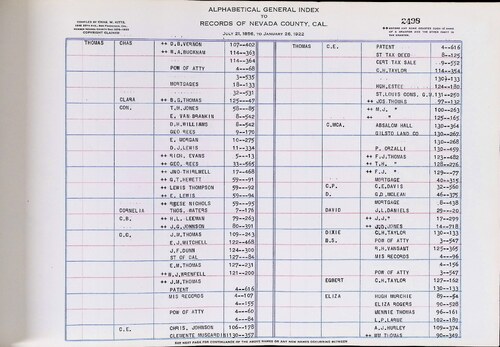 ALPHABETICAL GENERAL INDEX
TO
RECORDS OF NEVADA COUNTY, CAL.
JULY 21, 1856, TO JANUARY 28, 1922
COPYRIGHT CLAIMED
2498
THOMAS CHAS ++ D.B.VERNON 107--402
++ H.A.BUCKMAN 114--363
114--364
POW OF ATTY 4---68
3--535
MORTGAGES 18--133
32--531
CLARA ++ B.G.THOMAS 125---47
CON. T.H.JONES 2---85
E. VAN BRANKIN 8--542
D.H.WILLIAMS 8--542
GEO REES 9--170
E. MORGAN 10--275
D.J.LEWIS 11--334
++ RICH. EVANS 5---13
++ GEO. REES 33--565
++ JNO THIRLWELL 17--468
++ G.T.HEWETT 59---91
++ LEWIS THOMPSON 59---92
++ E. LEWIS 59---94
++ REESE NICHOLS 59---95
CORNELIA THOS. WATERS 7--176
C.R. ++ H.L. LEEMAN 79--263
++ J.G. JOHNSON 80--391
C.D. J.M.THOMAS 109--243
E.J.MITCHELL 122--468
J.F.DUNN 124--300
ST OF CAL 127---84
E.M.THOMAS 121--231
++ R.J.BRENFELL 121--200
++ J.M.THOMAS
PATENT 4--616
MIS RECORDS 4--107
4--155
POW OF ATTY 4---60
4---84
C.E. CHRIS. JOHNSON 106--178
CLEMENTE MUSCARDINI 130--357
THOMAS C.E. PATENT 4--616
ST TAX DEED 8--125
CERT TAX SALE 9--552
C.H.TAYLOR 114--354
130--133
HIGH.ESTEE 124--180
ST.LOUIS CONS. G.M. 131--250
++ JOS.THOMAS 97--132
++ M.J. " 100--263
++ " 125--165
C.MCA. ABSALOM HALL 130--364
GILSTO LAND CO 130--267
130--268
P. ORZALLI 130--459
++ F.J.THOMAS 123--482
++ T.H. " 128--276
++ F.J. " 129---77
MORTGAGE 40--315
C.P. C.E.DAVIS 32--560
D. G.D.MCLEAN 46--375
MORTGAGE 8--438
DAVID J.L.DANIELS 29---20
++ J.J." 17--299
++ J.D.JONES 14--718
DIXIE C.H.TAYLOR 130--133
B.S. POW OF ATTY 3--547
R.H.VANSANT 125--365
MIS RECORDS 4---96
4--156
POW OF ATTY 3--547
EGBERT C.H.TAYLOR 127--162
130--133
ELIZA HUGH MURCHIE 89---54
ELIZA ROGERS 90--528
MENNIE THOMAS 96--161
L.P.LARUE 102--180
A.J.HURLEY 109--374
++ WM THOMAS 90--349